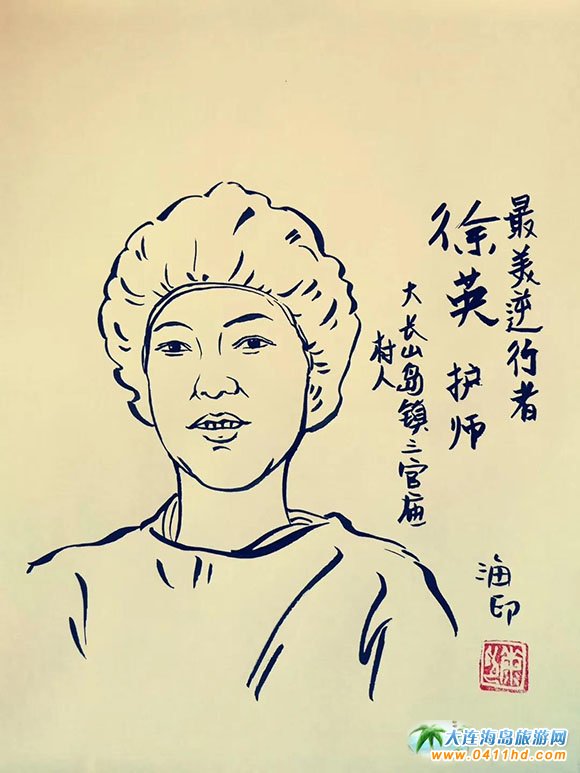 最美逆行者
徐英 护师
大长山岛镇三官庙
村人
海印
大连海岛旅游网
www.0411hd.com